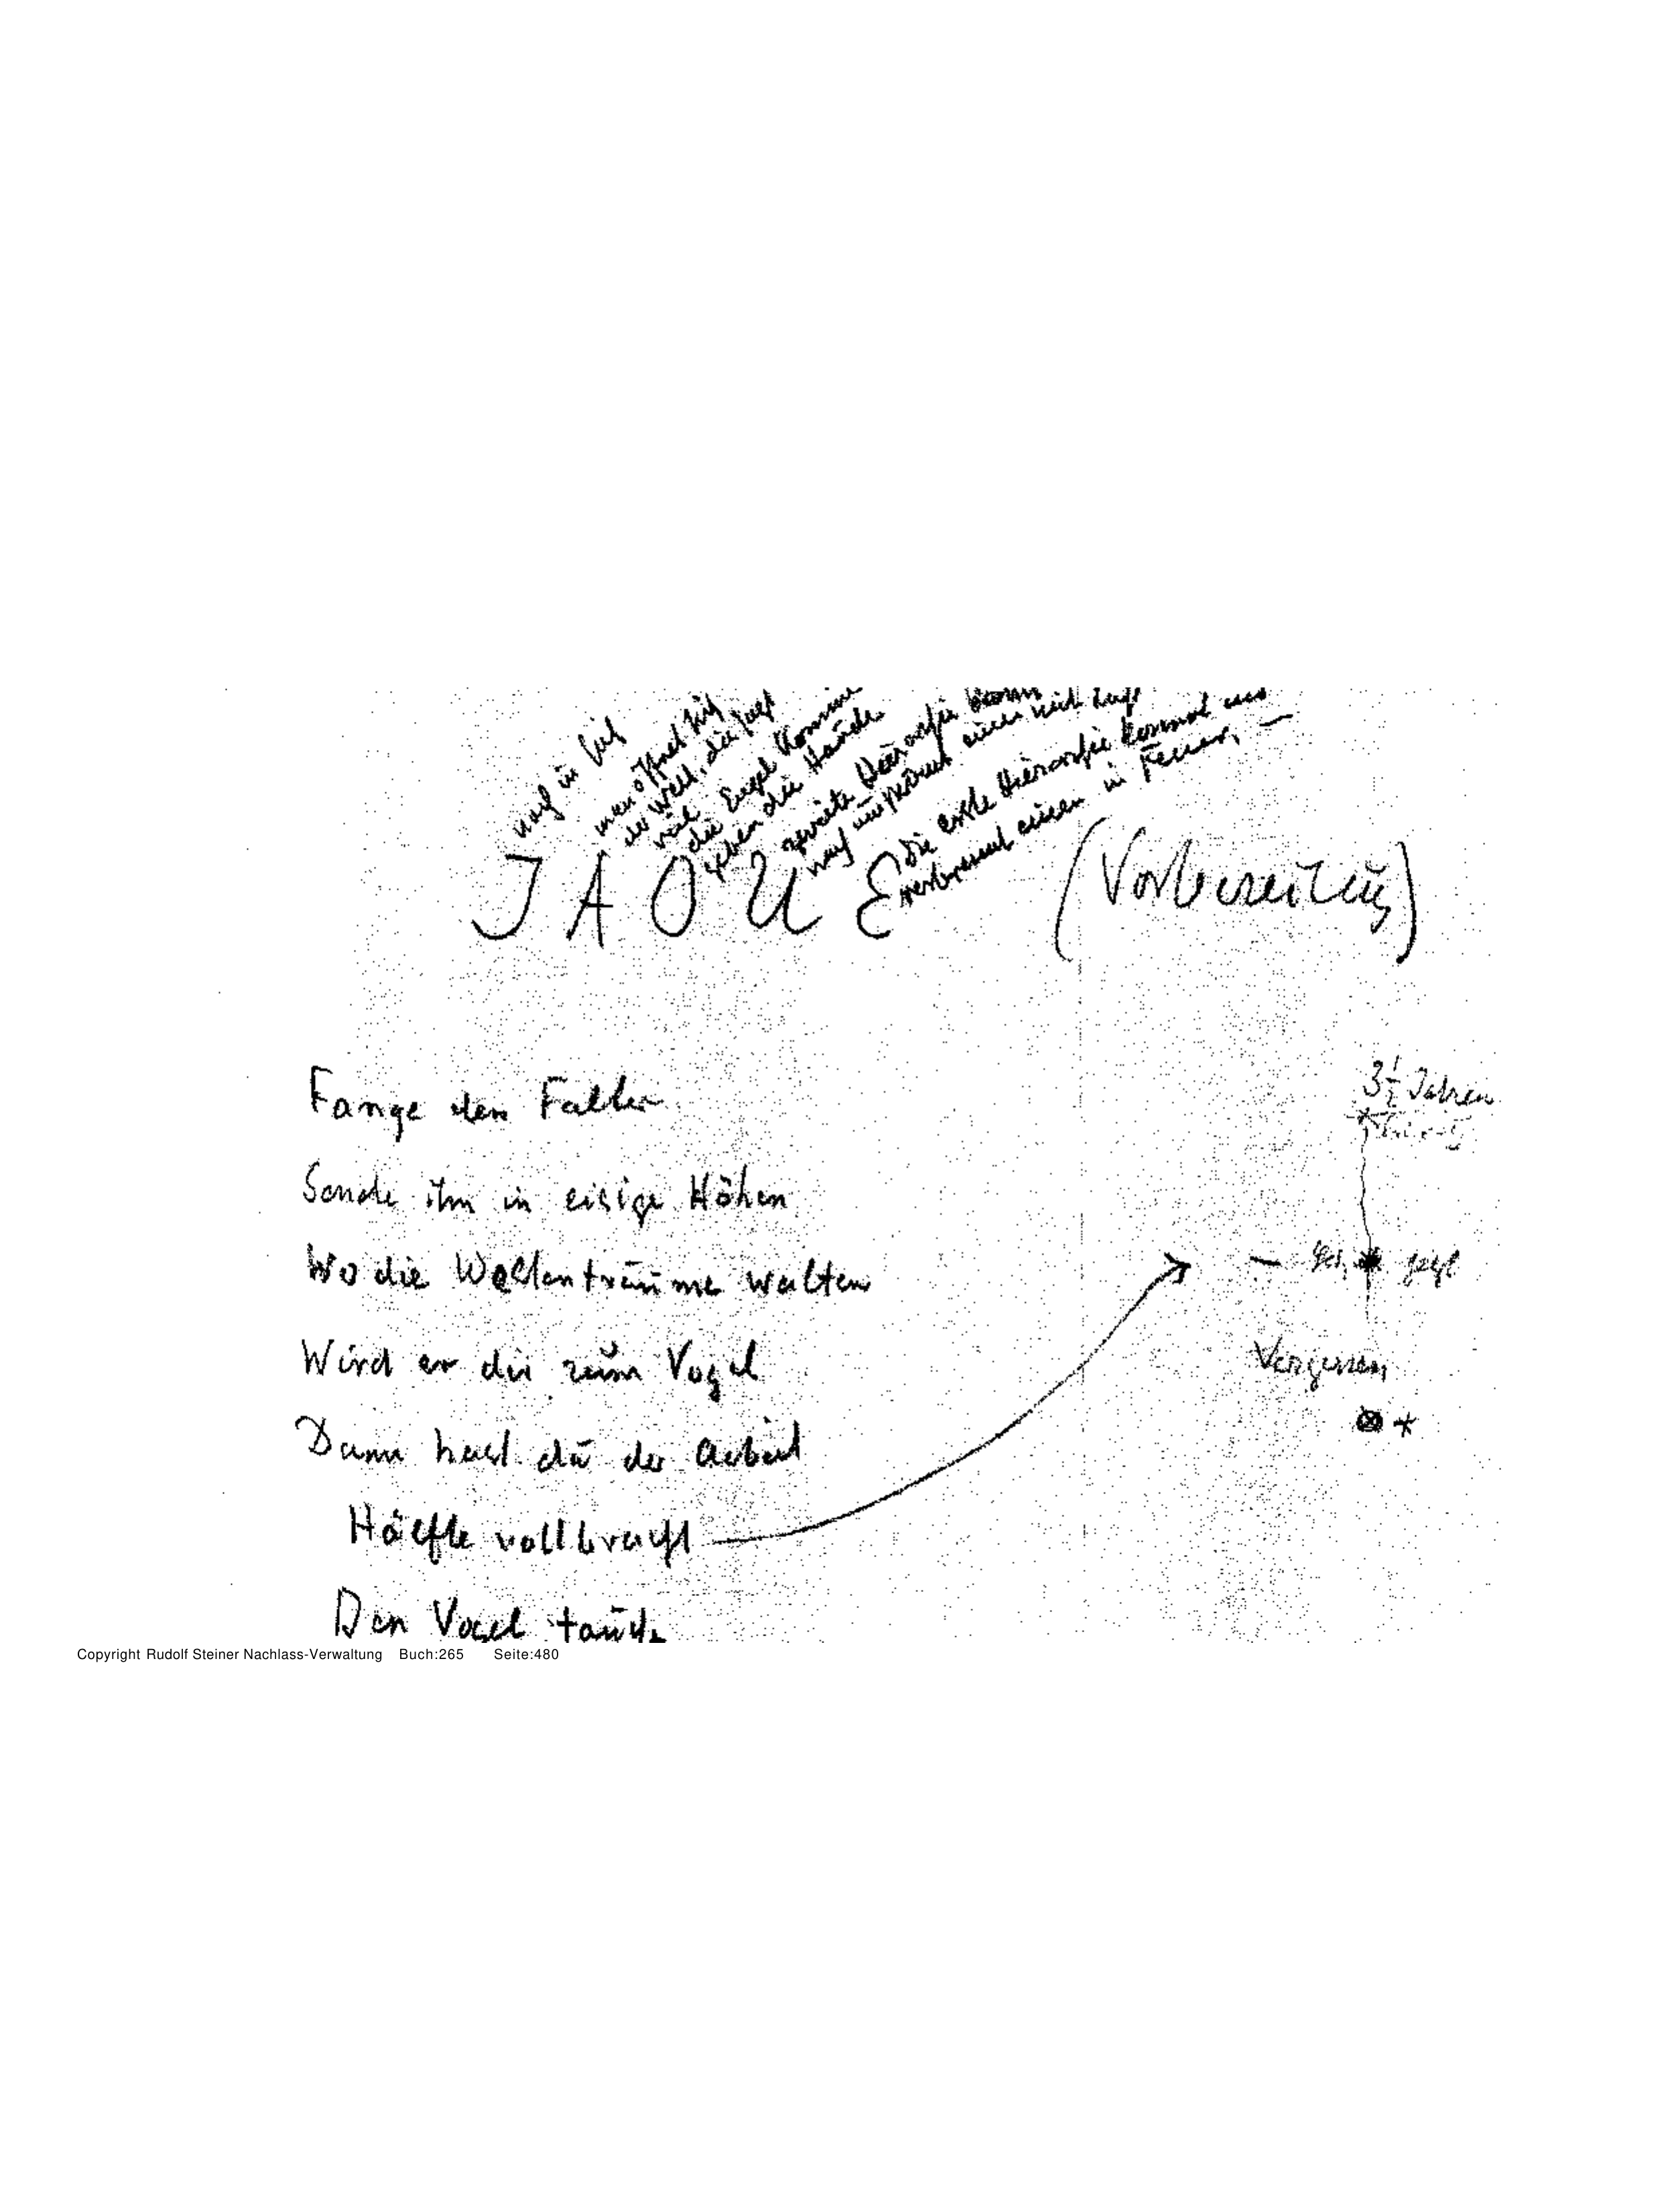 man öffnet sich
der Welt, die sagt
die Engel kommen
geben die Hände
zweite Hierarchie kommt
die erste Hierarchie kommt und
verbrennt einen in Feuer, —
J A O U E (Vorbereitung)
Fange den Falter
Sende ihn in eisige Höhen
Wo die Weltenträume walten
Wird er dir zum Vogel
Dann hast du der Arbeit
Hälfte vollbracht
Den Vogel tauche
3½ Jahren
Vergessen
Copyright Rudolf Steiner Nachlass-Verwaltung Buch:265 Seite:480